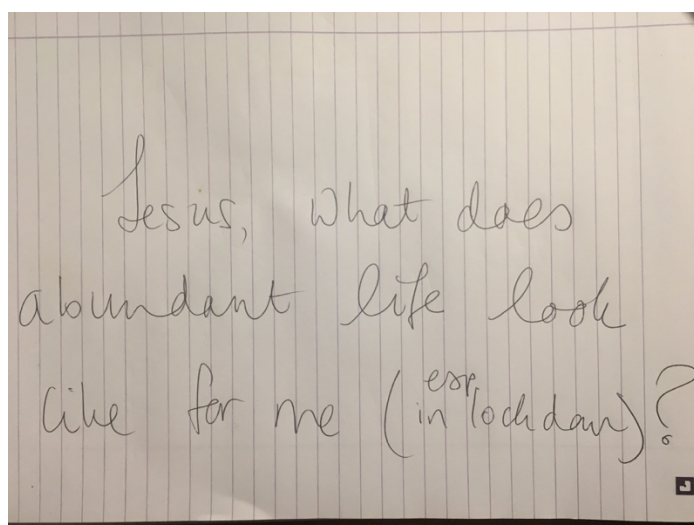 Jesus, what does
abundant life look
like for me (esp in lockdown)?